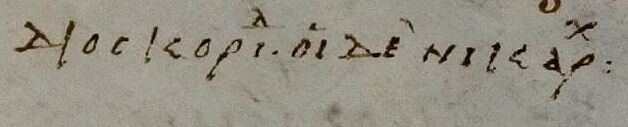 Διοσκοριδ. οἱ δὲ νικάρχ: